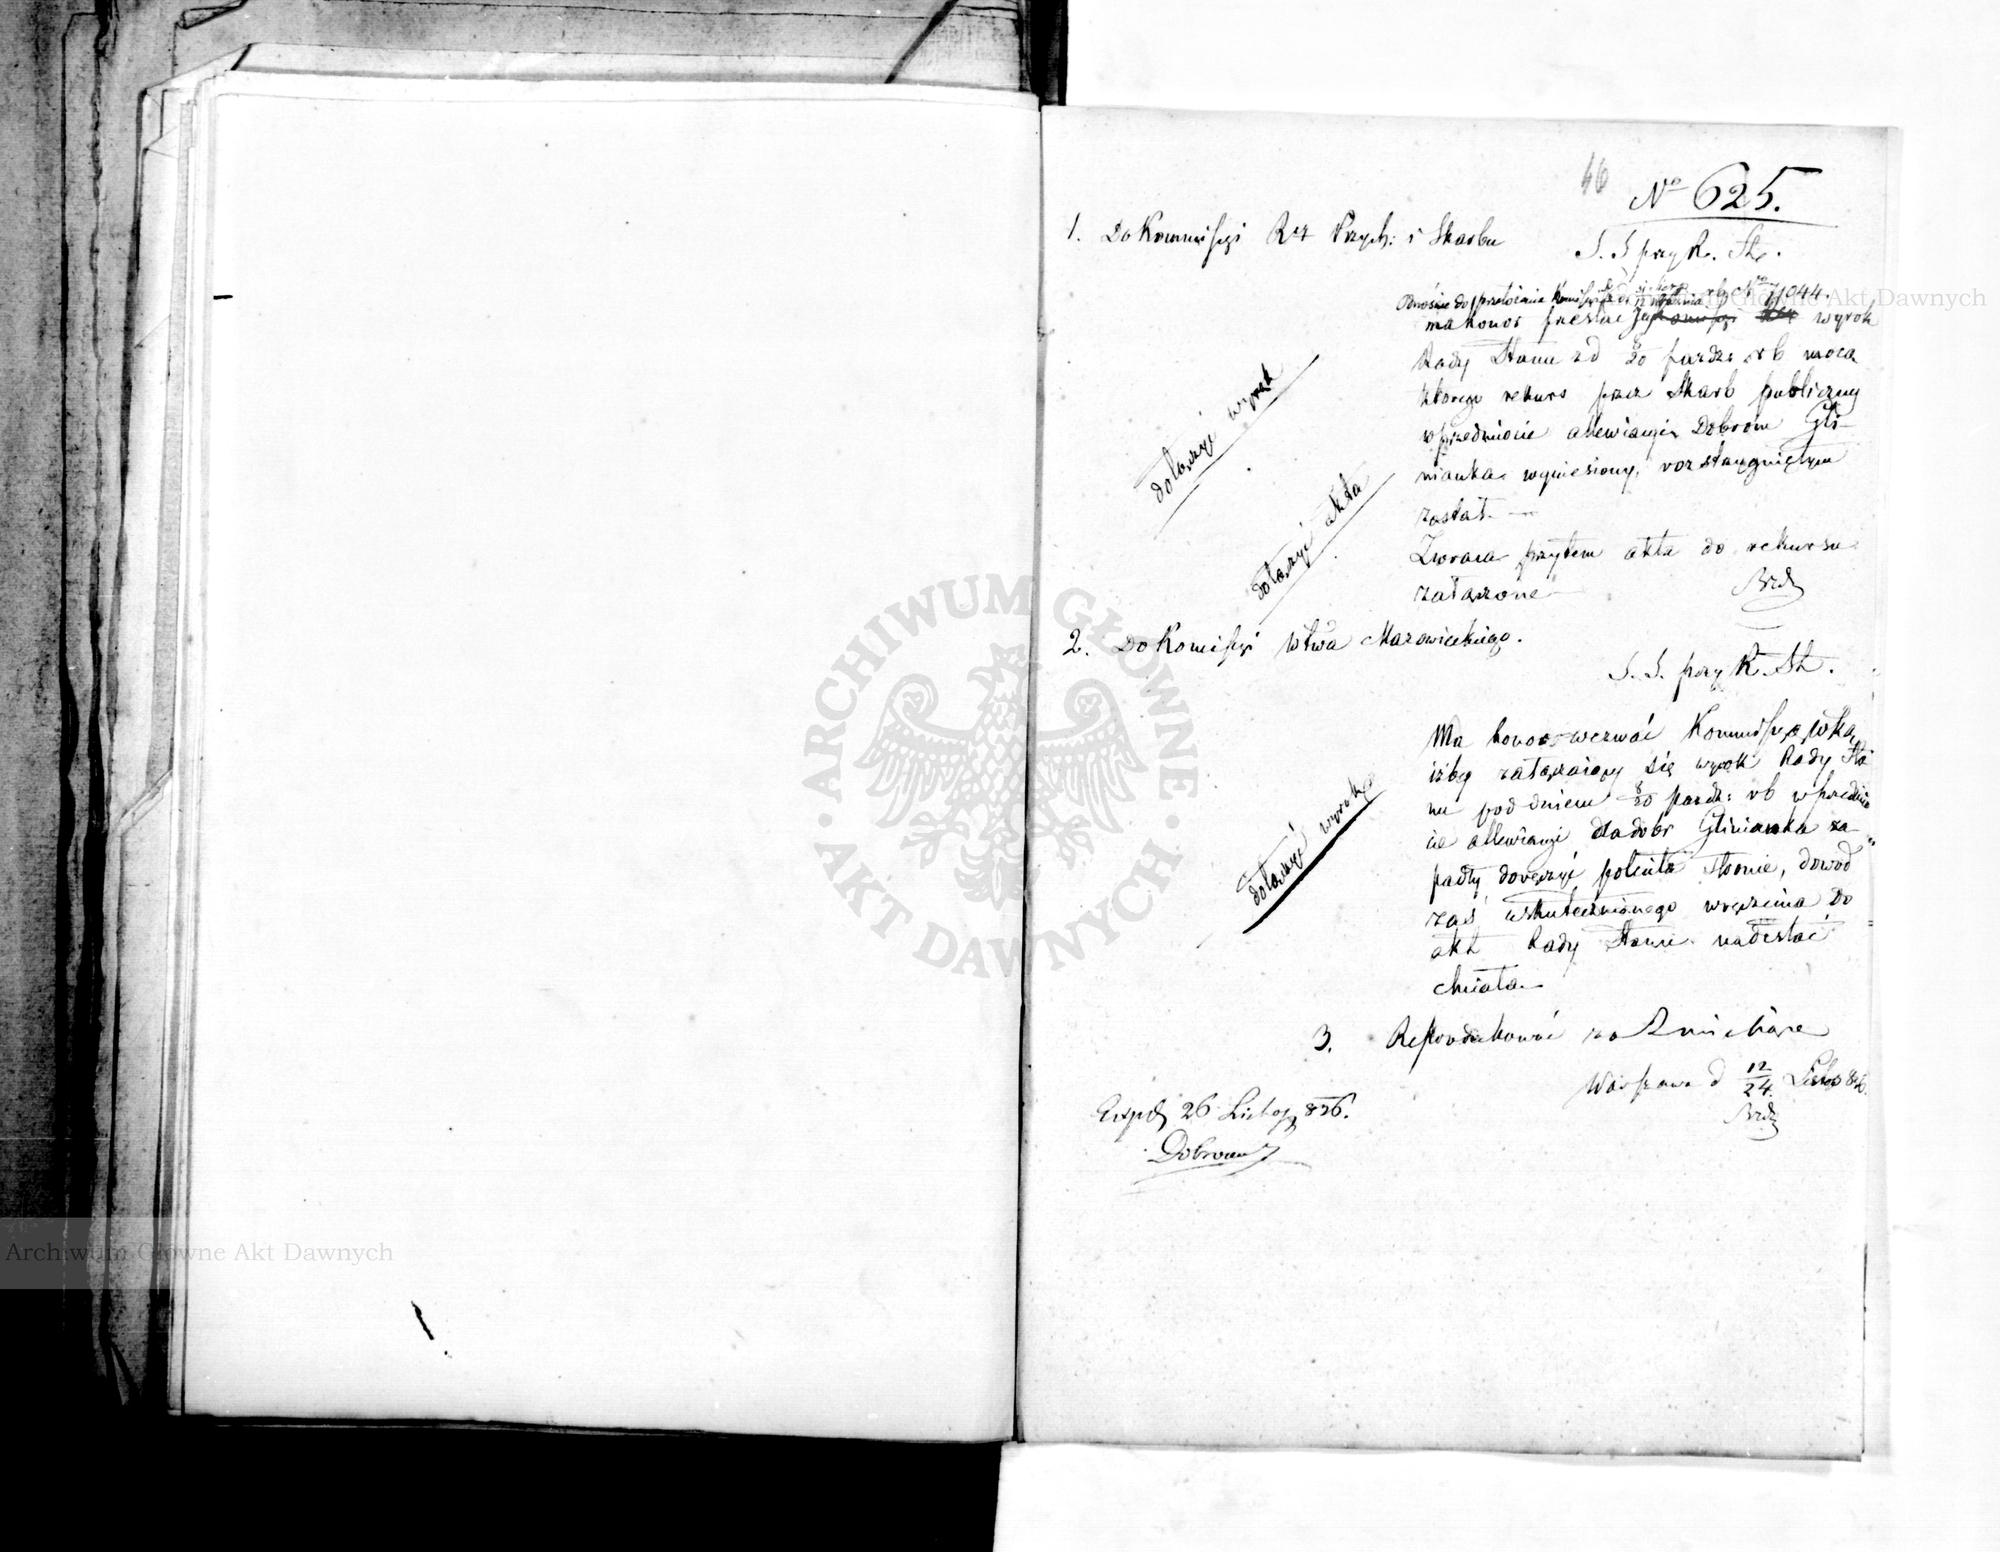 46
No 625.
1. Do Kommissyi Rz Przych: i Skarbu
S. S przy R. St.
Odnośnie do przełożenia Kommissyi rb No 71044.
ma honor przesłać wyrok
Rady Stanu z d 8/20 pazdz: rb mocą
którego rekurs przez Skarb publiczny
w przedmiocie allewiacyi Dobrom Gli-
nianka wyniesiony, rozstrzygniętym
został. —
Zwraca przytem akta do rekursu
załączone —
dołączyć wyrok
dołączyć akta
2. Do Komissyi Wtwa Mazowieckiego.
S. S. przy R. St.
Ma honor wezwać Kommissyą Wką,
iżby załączaiący się wyrok Rady Sta-
nu pod dniem 8/20 pazdz: rb w przedmio-
cie allewiacyi dla dobr Glinianka za-
padły doręczyć stronie, dowód
zaś uskutecznionego wręczenia do
akt Rady Stanu nadesłać
chciała. —
dołączyć wyrok
3.
Warszawa d 12/24 Listop 826.
Exped 26 Listop 826.
ARCHIWUM GŁÓWNE
AKT DAWNYCH
Archiwum Główne Akt Dawnych
Archiwum Główne Akt Dawnych